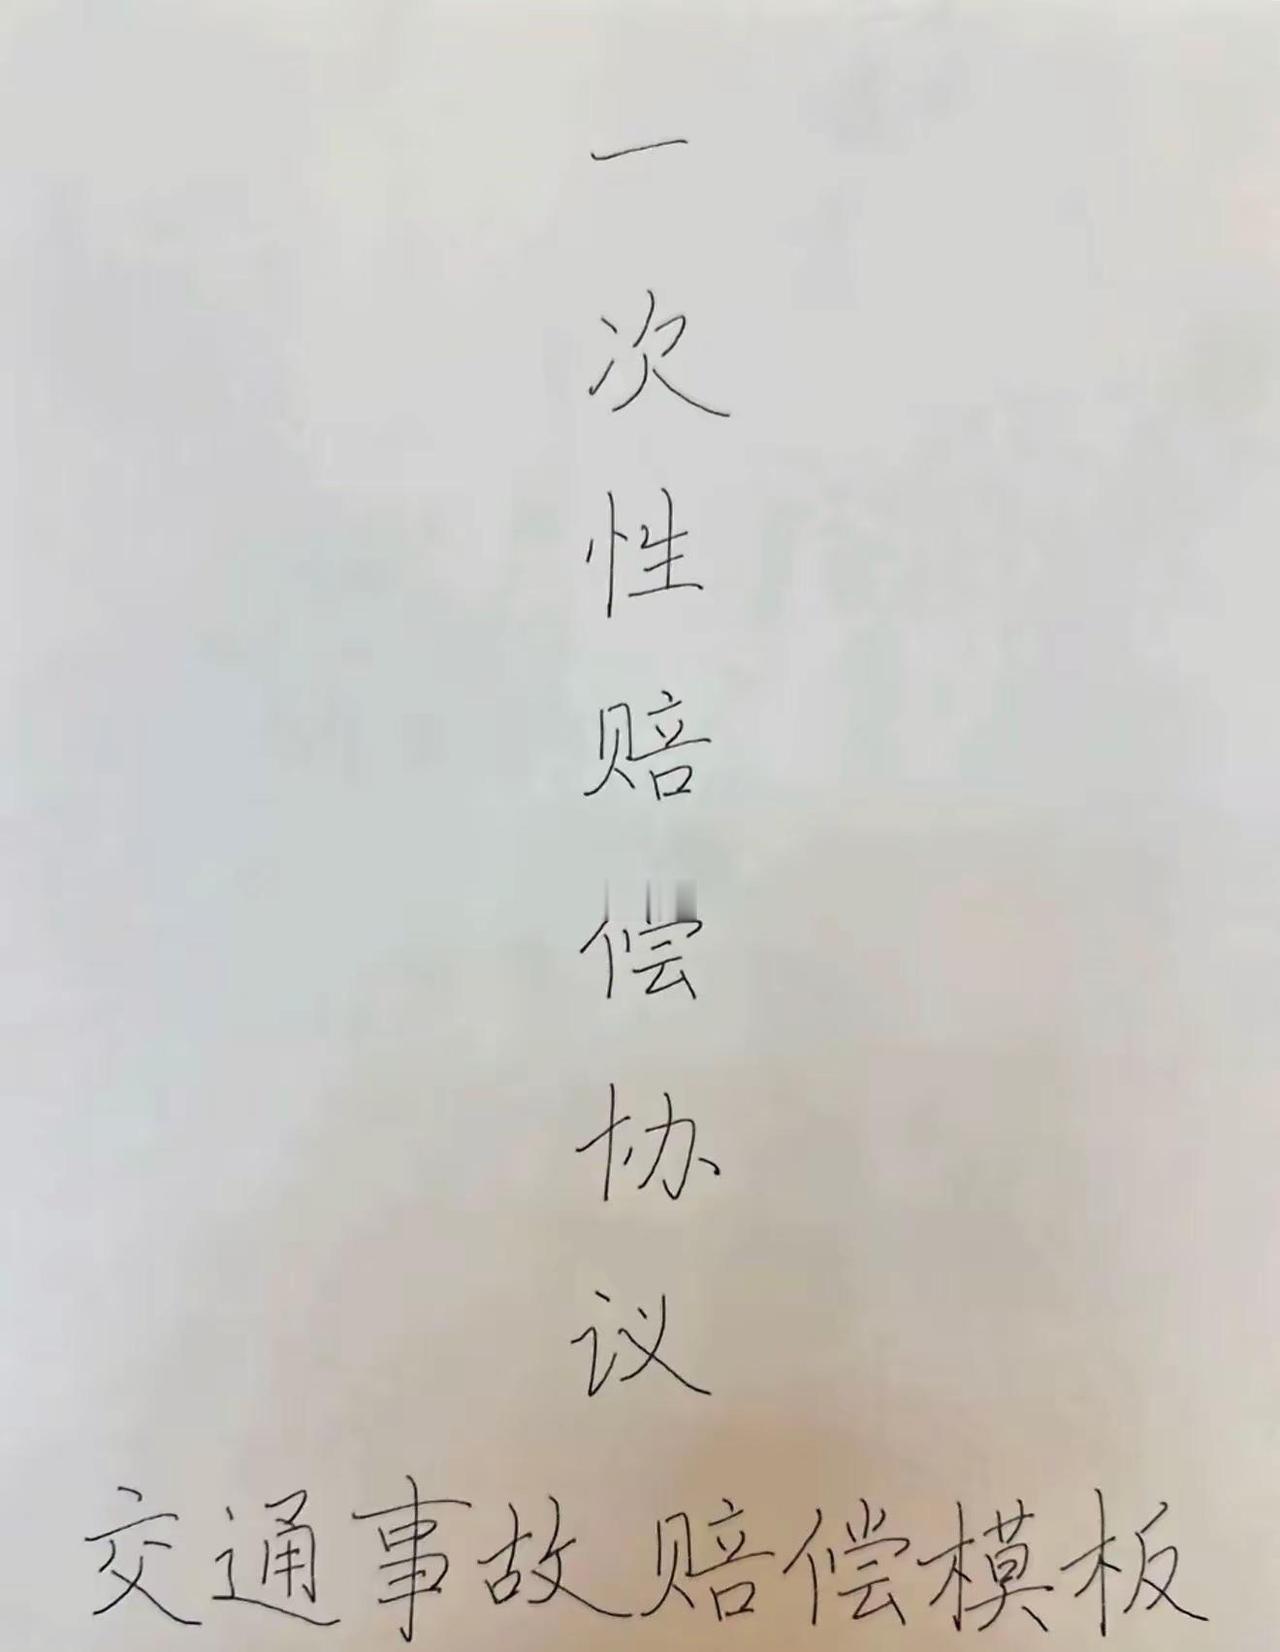 一次性赔偿协议
交通事故赔偿模板